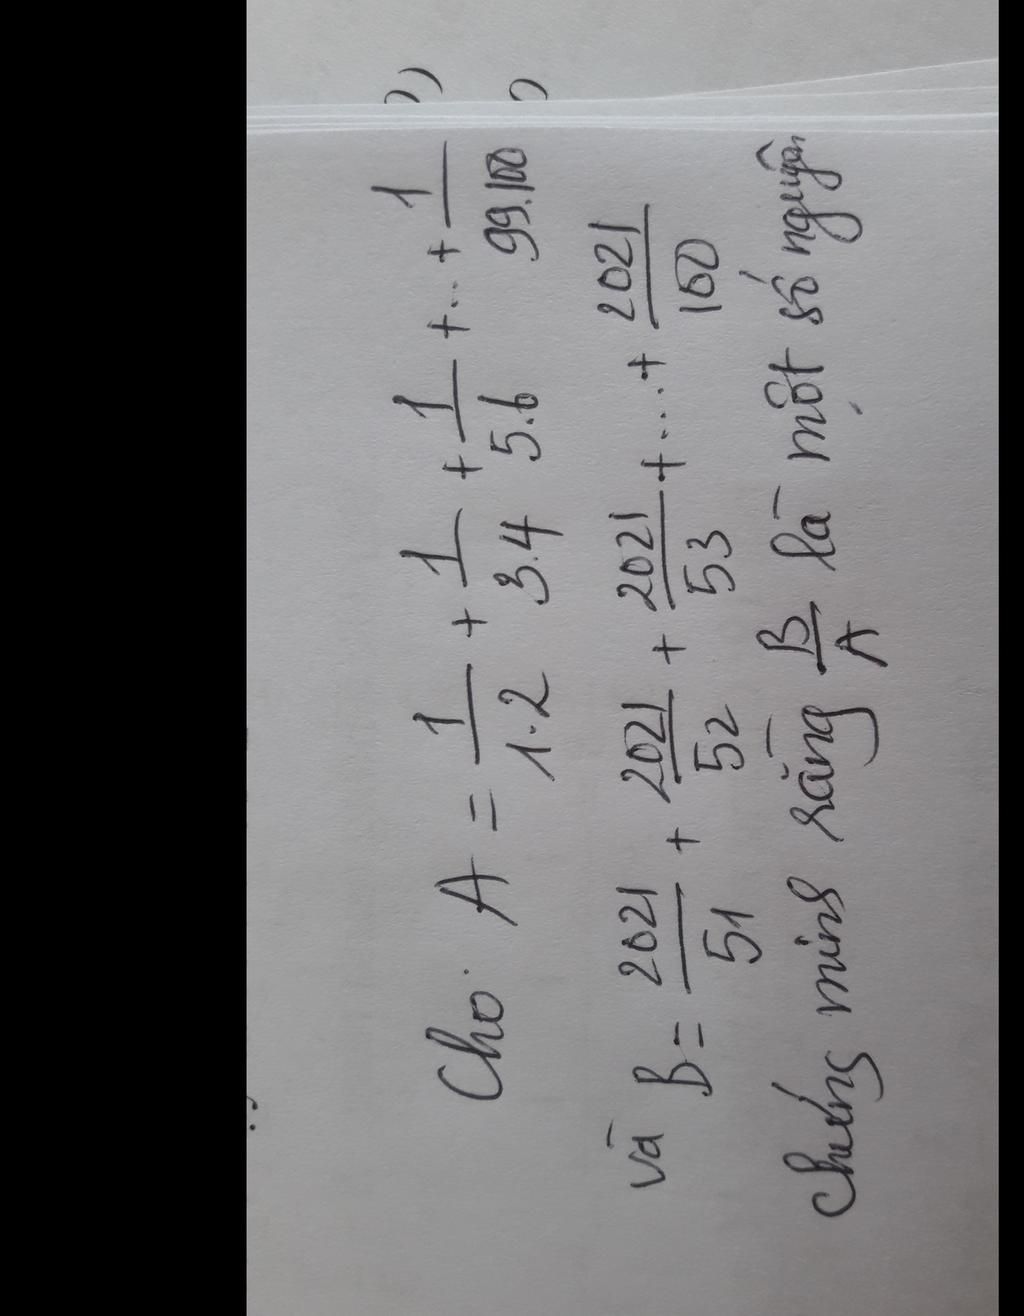 Cho A = 1/1.2 + 1/3.4 + 1/5.6 + ... + 1/99.100
và B = 2021/51 + 2021/52 + 2021/53 + .... + 2021/100
chứng minh rằng B/A là một số nguyên